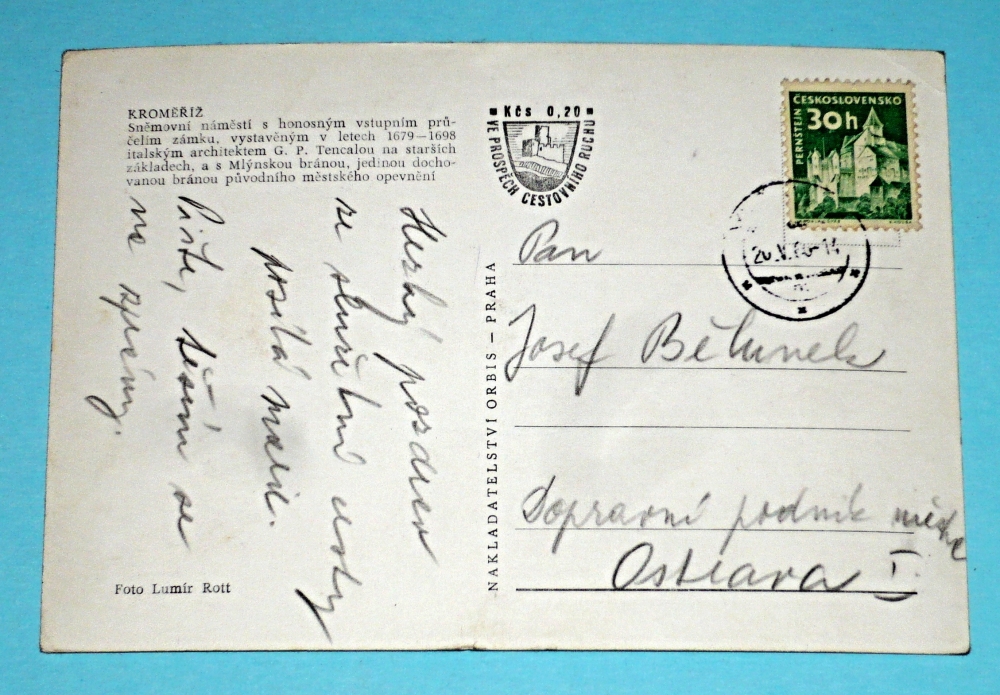 KROMĚŘÍŽ
Sněmovní náměstí s honosným vstupním prů-
čelím zámku, vystavěným v letech 1679—1698
italským architektem G. P. Tencalou na starších
základech, a s Mlýnskou bránou, jedinou docho-
vanou bránou původního městského opevnění
Hezký pozdrav
ze služební cesty
posílá
Pište, těším se
na zprávy.
Foto Lumír Rott
NAKLADATELSTVÍ ORBIS — PRAHA
Kčs 0,20
VE PROSPĚCH CESTOVNÍHO RUCHU
ČESKOSLOVENSKO
30h
PERNŠTEJN
Pan
Josef
Dopravní podnik města
Ostrava I.